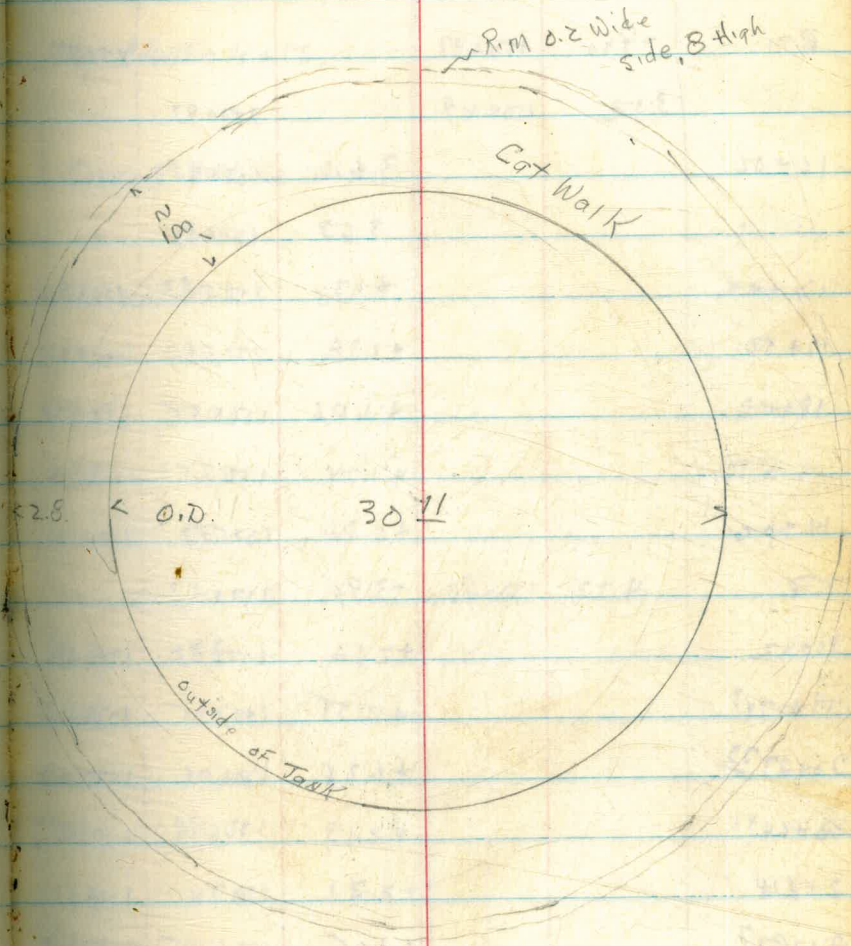 Rim 0.2 Wide
side, 8 High
Cat Walk
2.8
<2.8
< O.D. 30 11 >
outside of Tank